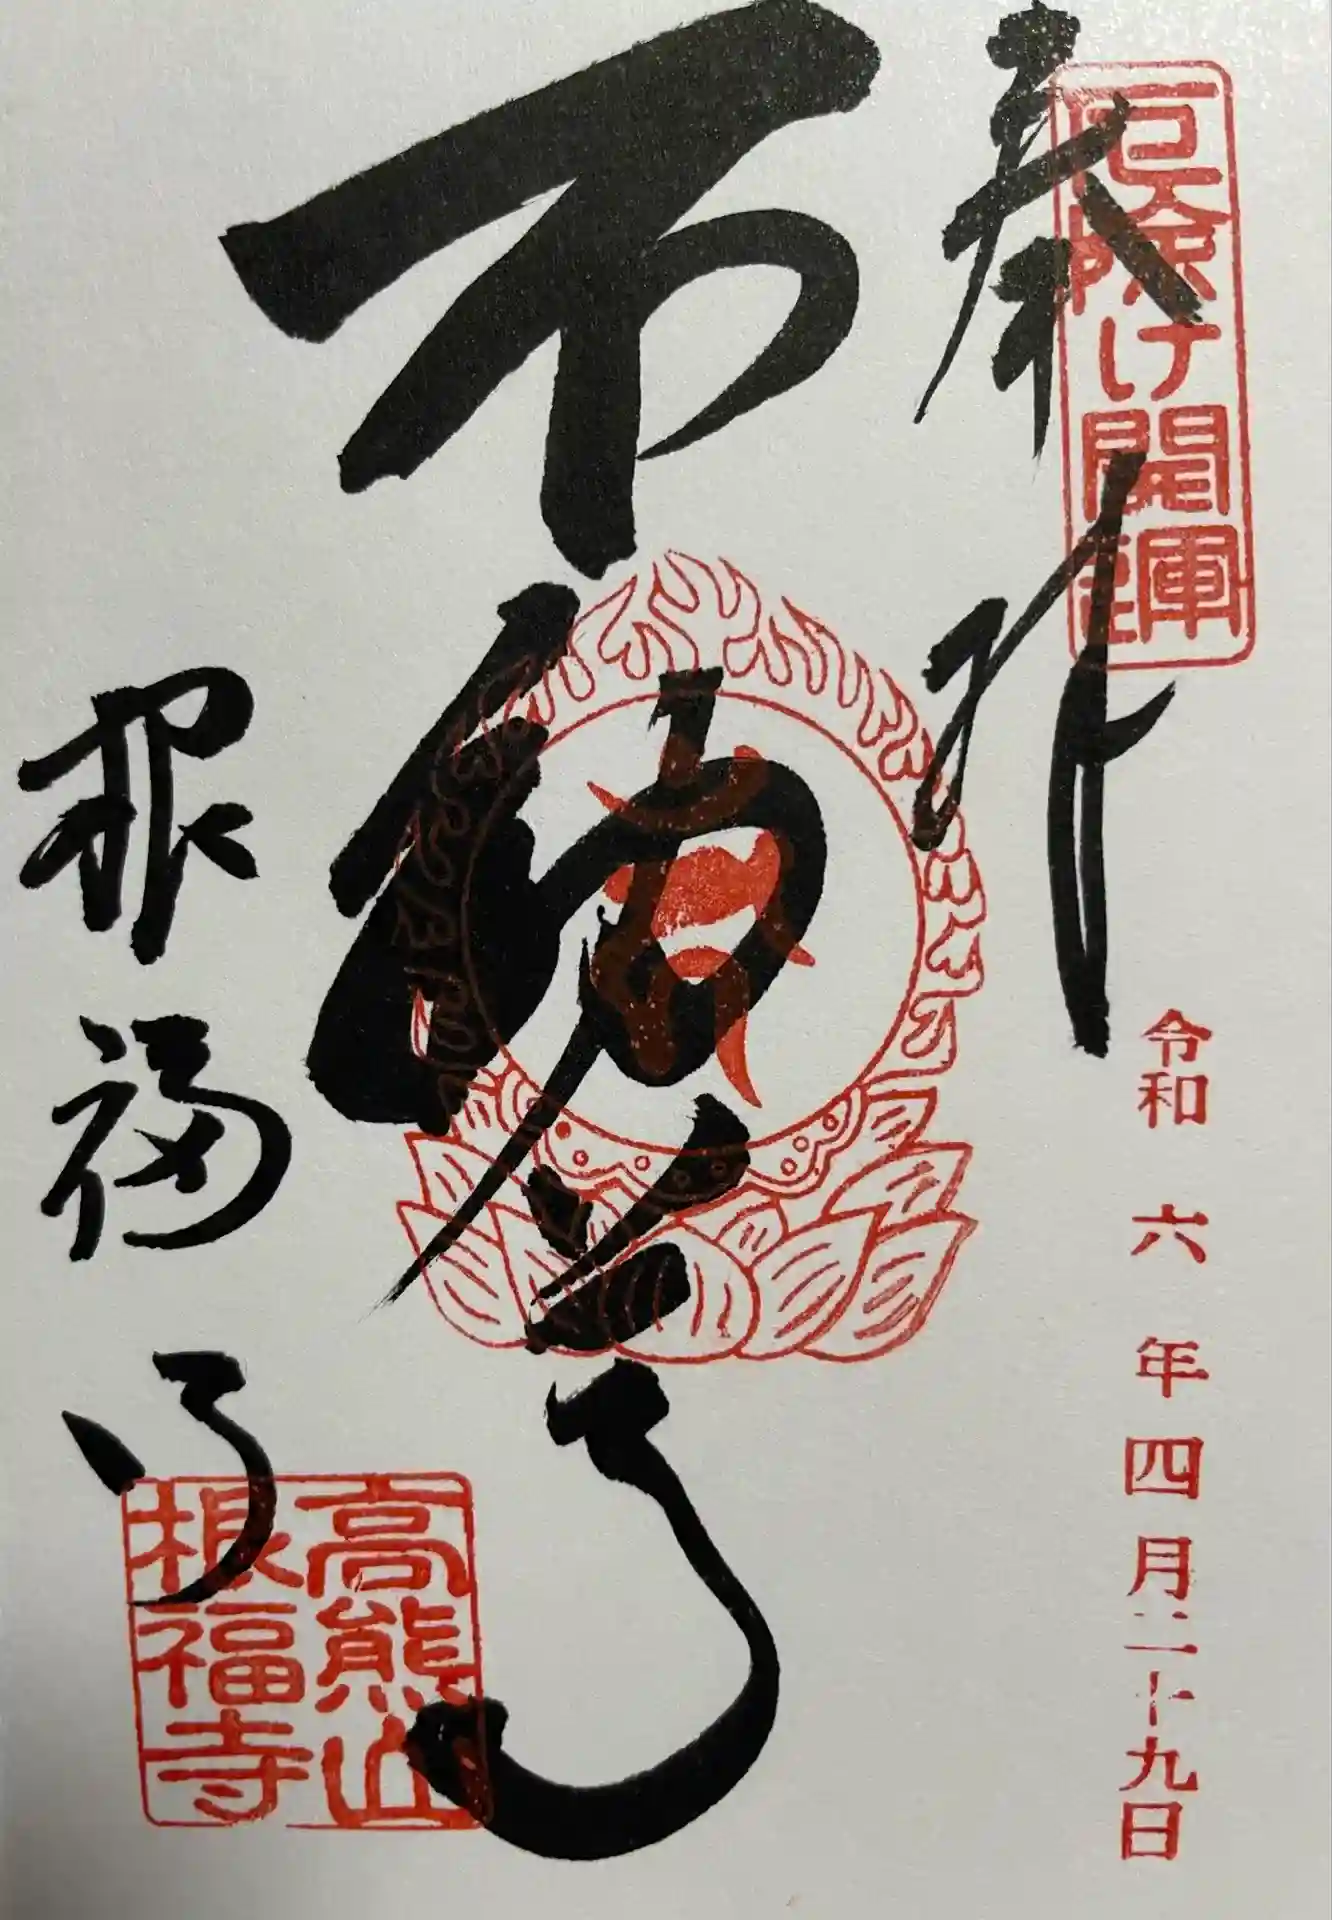 奉拝
厄除け開運
令和 六年四月二十九日
不動尊
根福寺
高熊山
根福寺